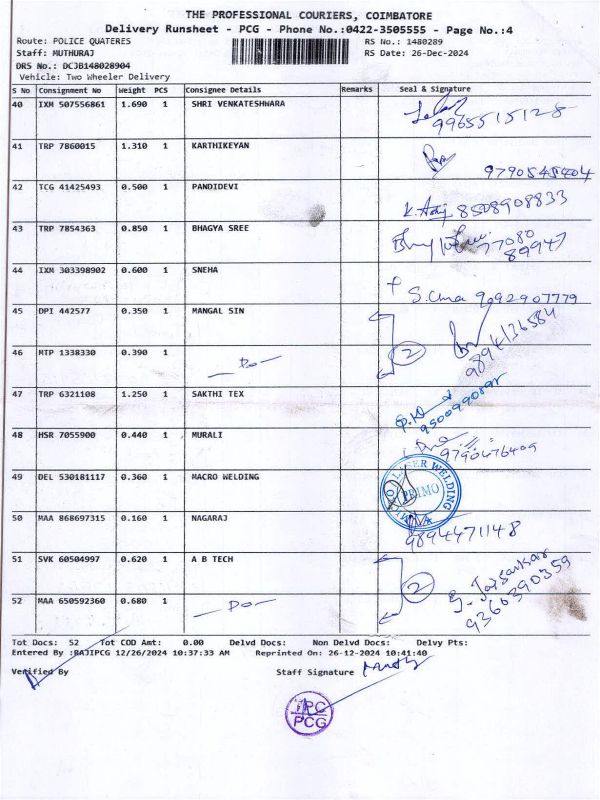 THE PROFESSIONAL COURIERS, COIMBATORE
Delivery Runsheet - PCG - Phone No.:0422-3505555 - Page No.:4
Route: POLICE QUATERES RS No.: 1480289
Staff: MUTHURAJ RS Date: 26-Dec-2024
DRS No.: DCJB148028904
Vehicle: Two Wheeler Delivery
S No Consignment No Weight PCS Consignee Details Remarks Seal & Signature
40 IXM 507556861 1.690 1 SHRI VENKATESHWARA
9965515128
41 TRP 7860015 1.310 1 KARTHIKEYAN
9790545404
42 TCG 41425493 0.500 1 PANDIDEVI
8508908833
43 TRP 7854363 0.850 1 BHAGYA SREE
77080
89947
44 IXM 303398902 0.600 1 SNEHA
S.Uma 9092907779
45 DPI 442577 0.350 1 MANGAL SIN
2 9894136584
46 MTP 1338330 0.390 1 —Do—
47 TRP 6321108 1.250 1 SAKTHI TEX
9500990891
48 HSR 7055900 0.440 1 MURALI
9790476409
49 DEL 530181117 0.360 1 MACRO WELDING
LASER WELDING
PRIMO
50 MAA 868697315 0.160 1 NAGARAJ
9894471148
51 SVK 60504997 0.620 1 A B TECH
2 G. Jaisankar
9360390359
52 MAA 650592360 0.680 1 —Do—
Tot Docs: 52 Tot COD Amt: 0.00 Delvd Docs: Non Delvd Docs: Delvy Pts:
Entered By :RAJIPCG 12/26/2024 10:37:33 AM Reprinted On: 26-12-2024 10:41:40
Verified By Staff Signature
TPC
PCG